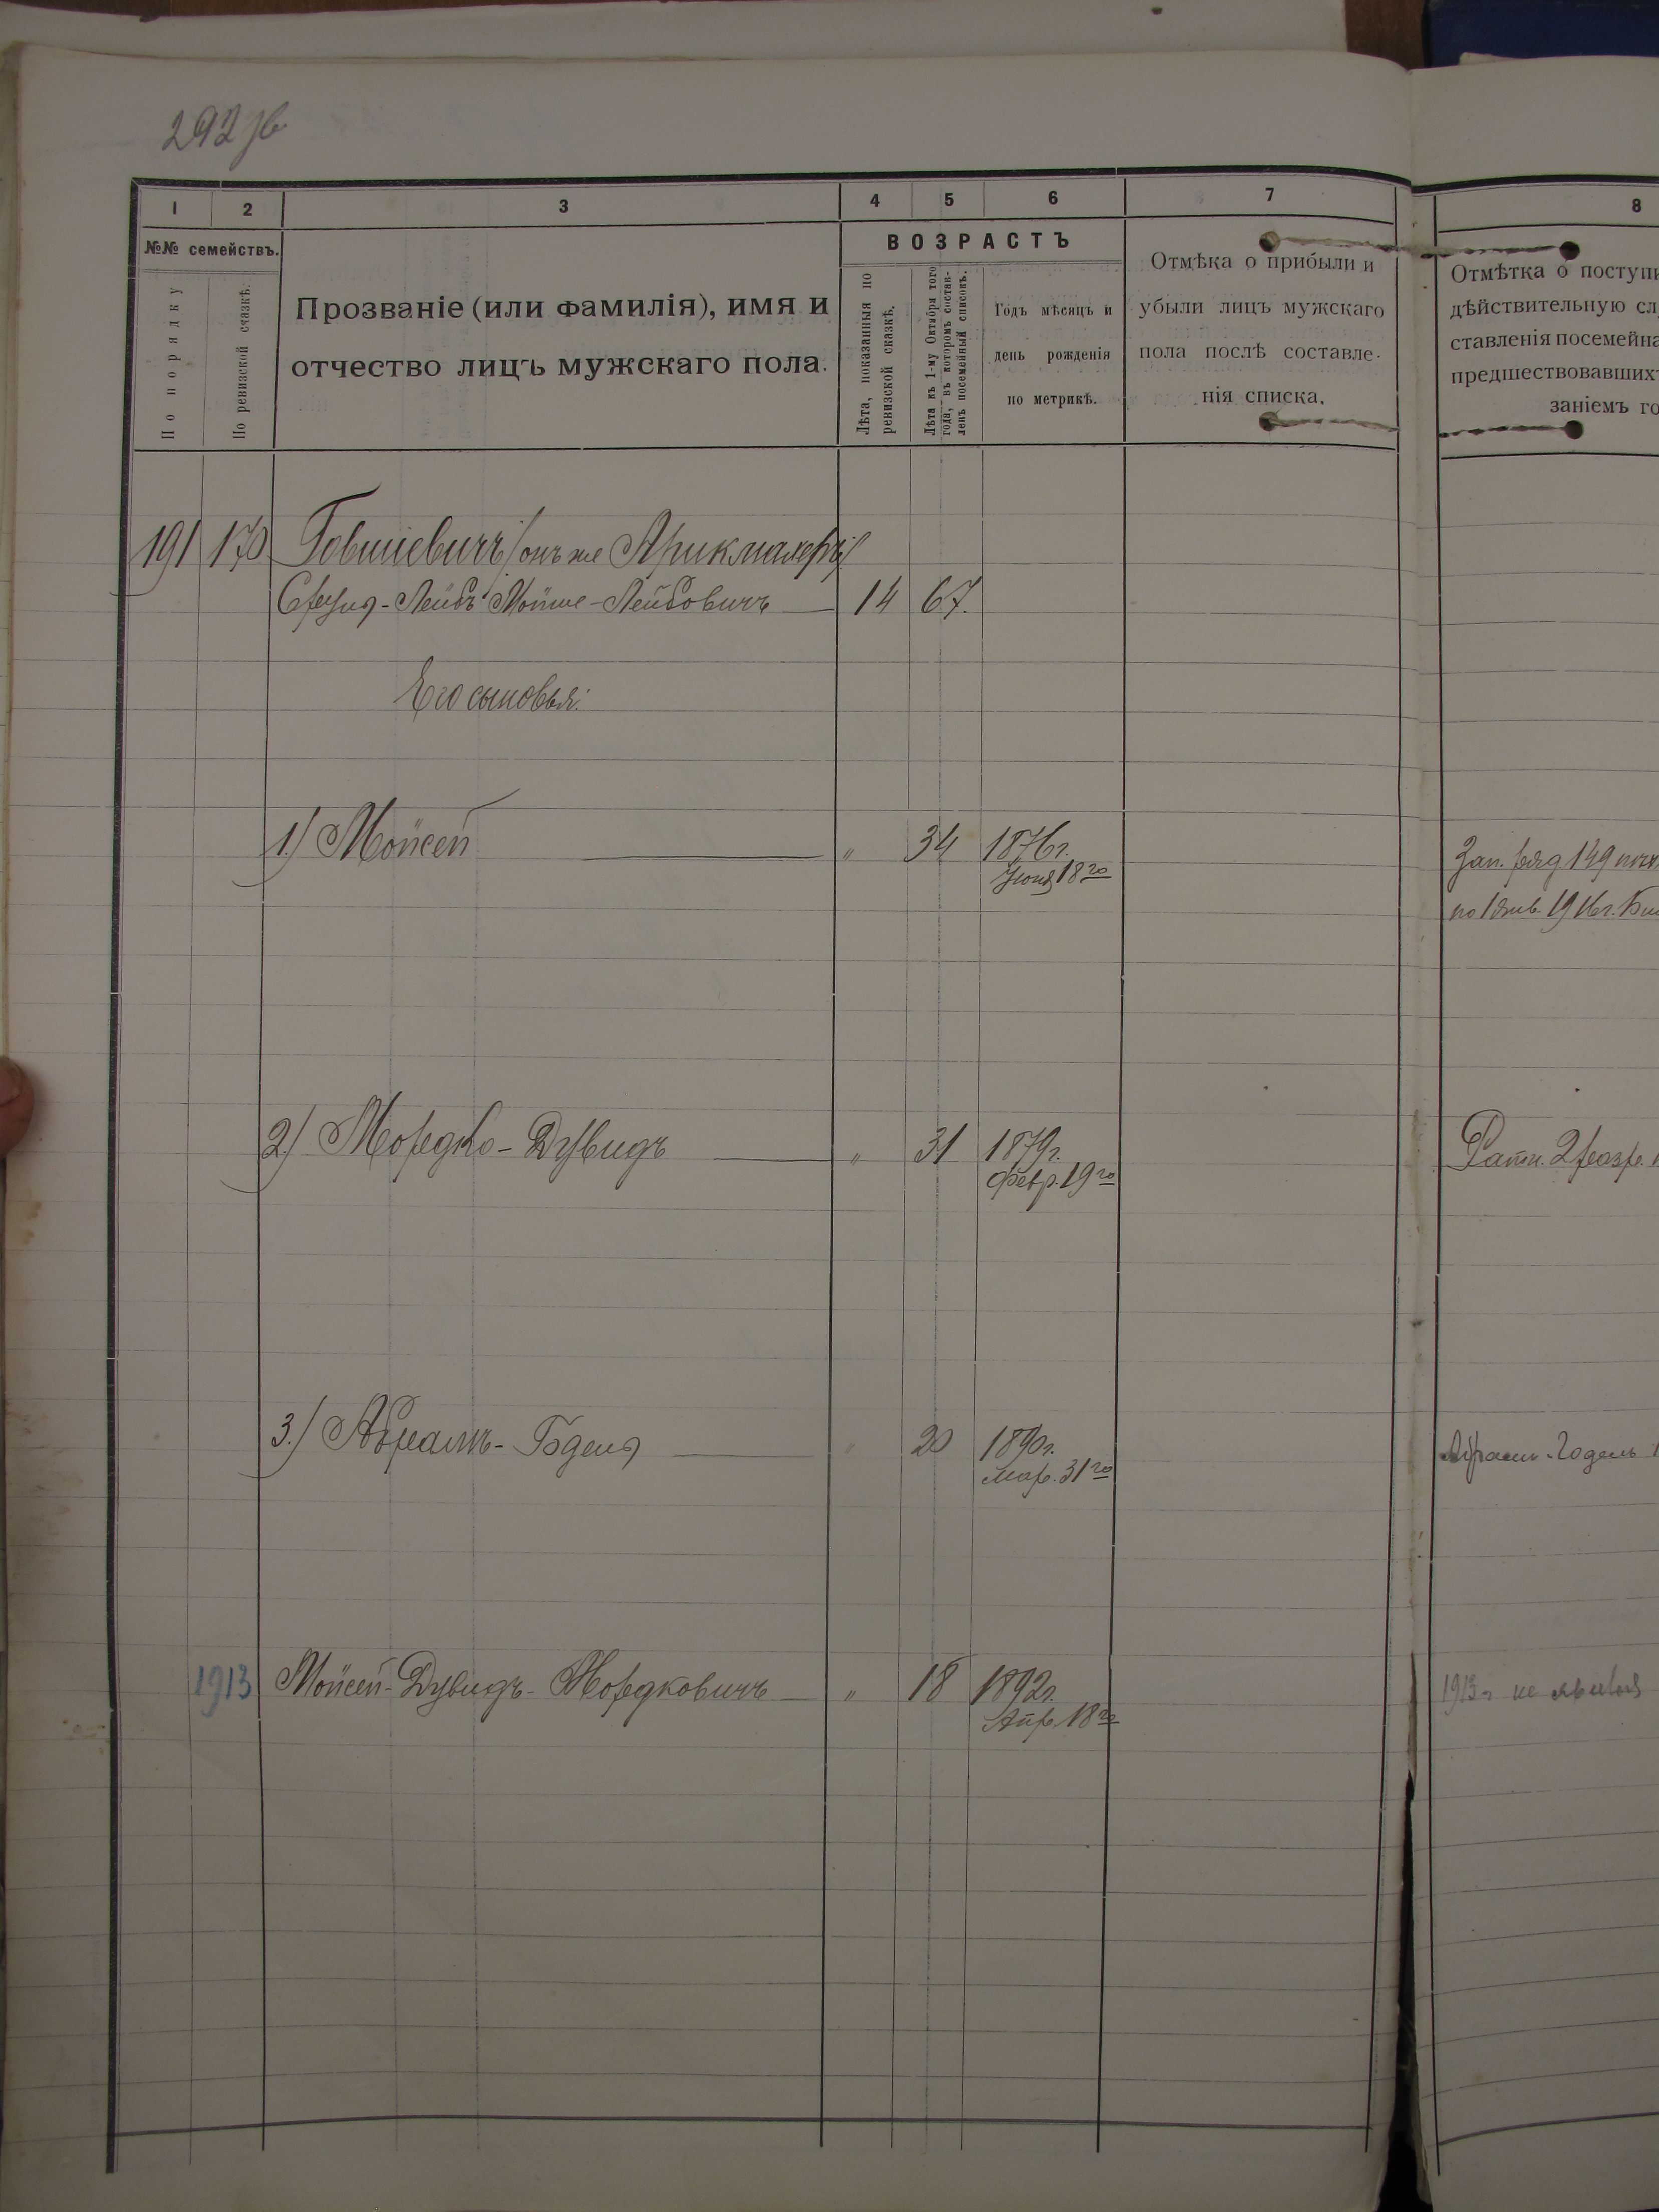 292 об
1 2 3 4 5 6 7 8
№№ семействъ.
По порядку
По ревизской сказкѣ.
Прозваніе (или фамилія), имя и
отчество лицъ мужскаго пола.
ВОЗРАСТЪ
Лѣта, показанныя по
ревизской сказкѣ.
Лѣта къ 1-му Октября того
года, въ которомъ состав-
ленъ посемейный списокъ.
Годъ мѣсяцъ и
день рожденія
по метрикѣ.
Отмѣка о прибыли и
убыли лицъ мужскаго
пола послѣ составле-
нія списка.
Отмѣтка о поступи
дѣйствительную сл
ставленія посемейна
предшествовавших
заніемъ го
191 170 Говшіевичъ (онъ же Арикмахеръ)
Лейбъ Мойше-Лейбовичъ 14 67.
Его сыновья:
1.) Мойсей " 34 1876г.
Іюня 18го
Зап. ряд 149
по 1 янв. 1916г.
2.) Мордко-Дувидъ " 31 1879г.
Февр. 19го
Ратн. 2 разр.
3.) Абрамъ-Годель " 20 1890г.
Мар. 31го
Абрамъ-Годель
1913 Мойсей-Дувидъ-Мордковичъ " 18 1892г.
Апр. 18го
1913 г не явился